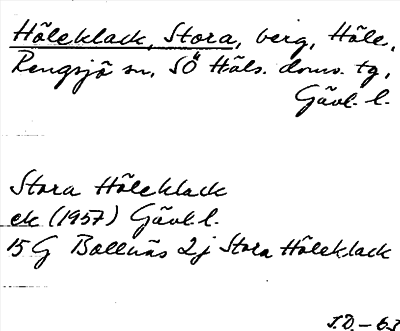 Höleklack, Stora, berg, Höle,
Rengsjö sn, SÖ Häls. doms. tg,
Gävl. l.
Stora Höleklack
ek (1957) Gävl. l.
15 G Bollnäs 2j Stora Höleklack
J.D. – 63